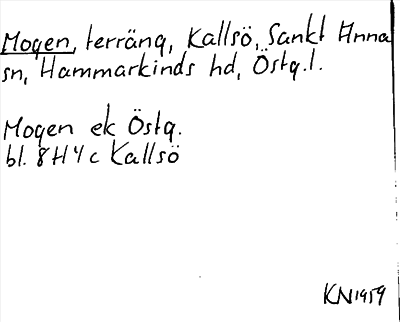 Mogen, terräng, Kallsö, Sankt Anna
sn, Hammarkinds hd, Östg.l.
Mogen ek Östg.
bl. 8H4c Kallsö
KN1959